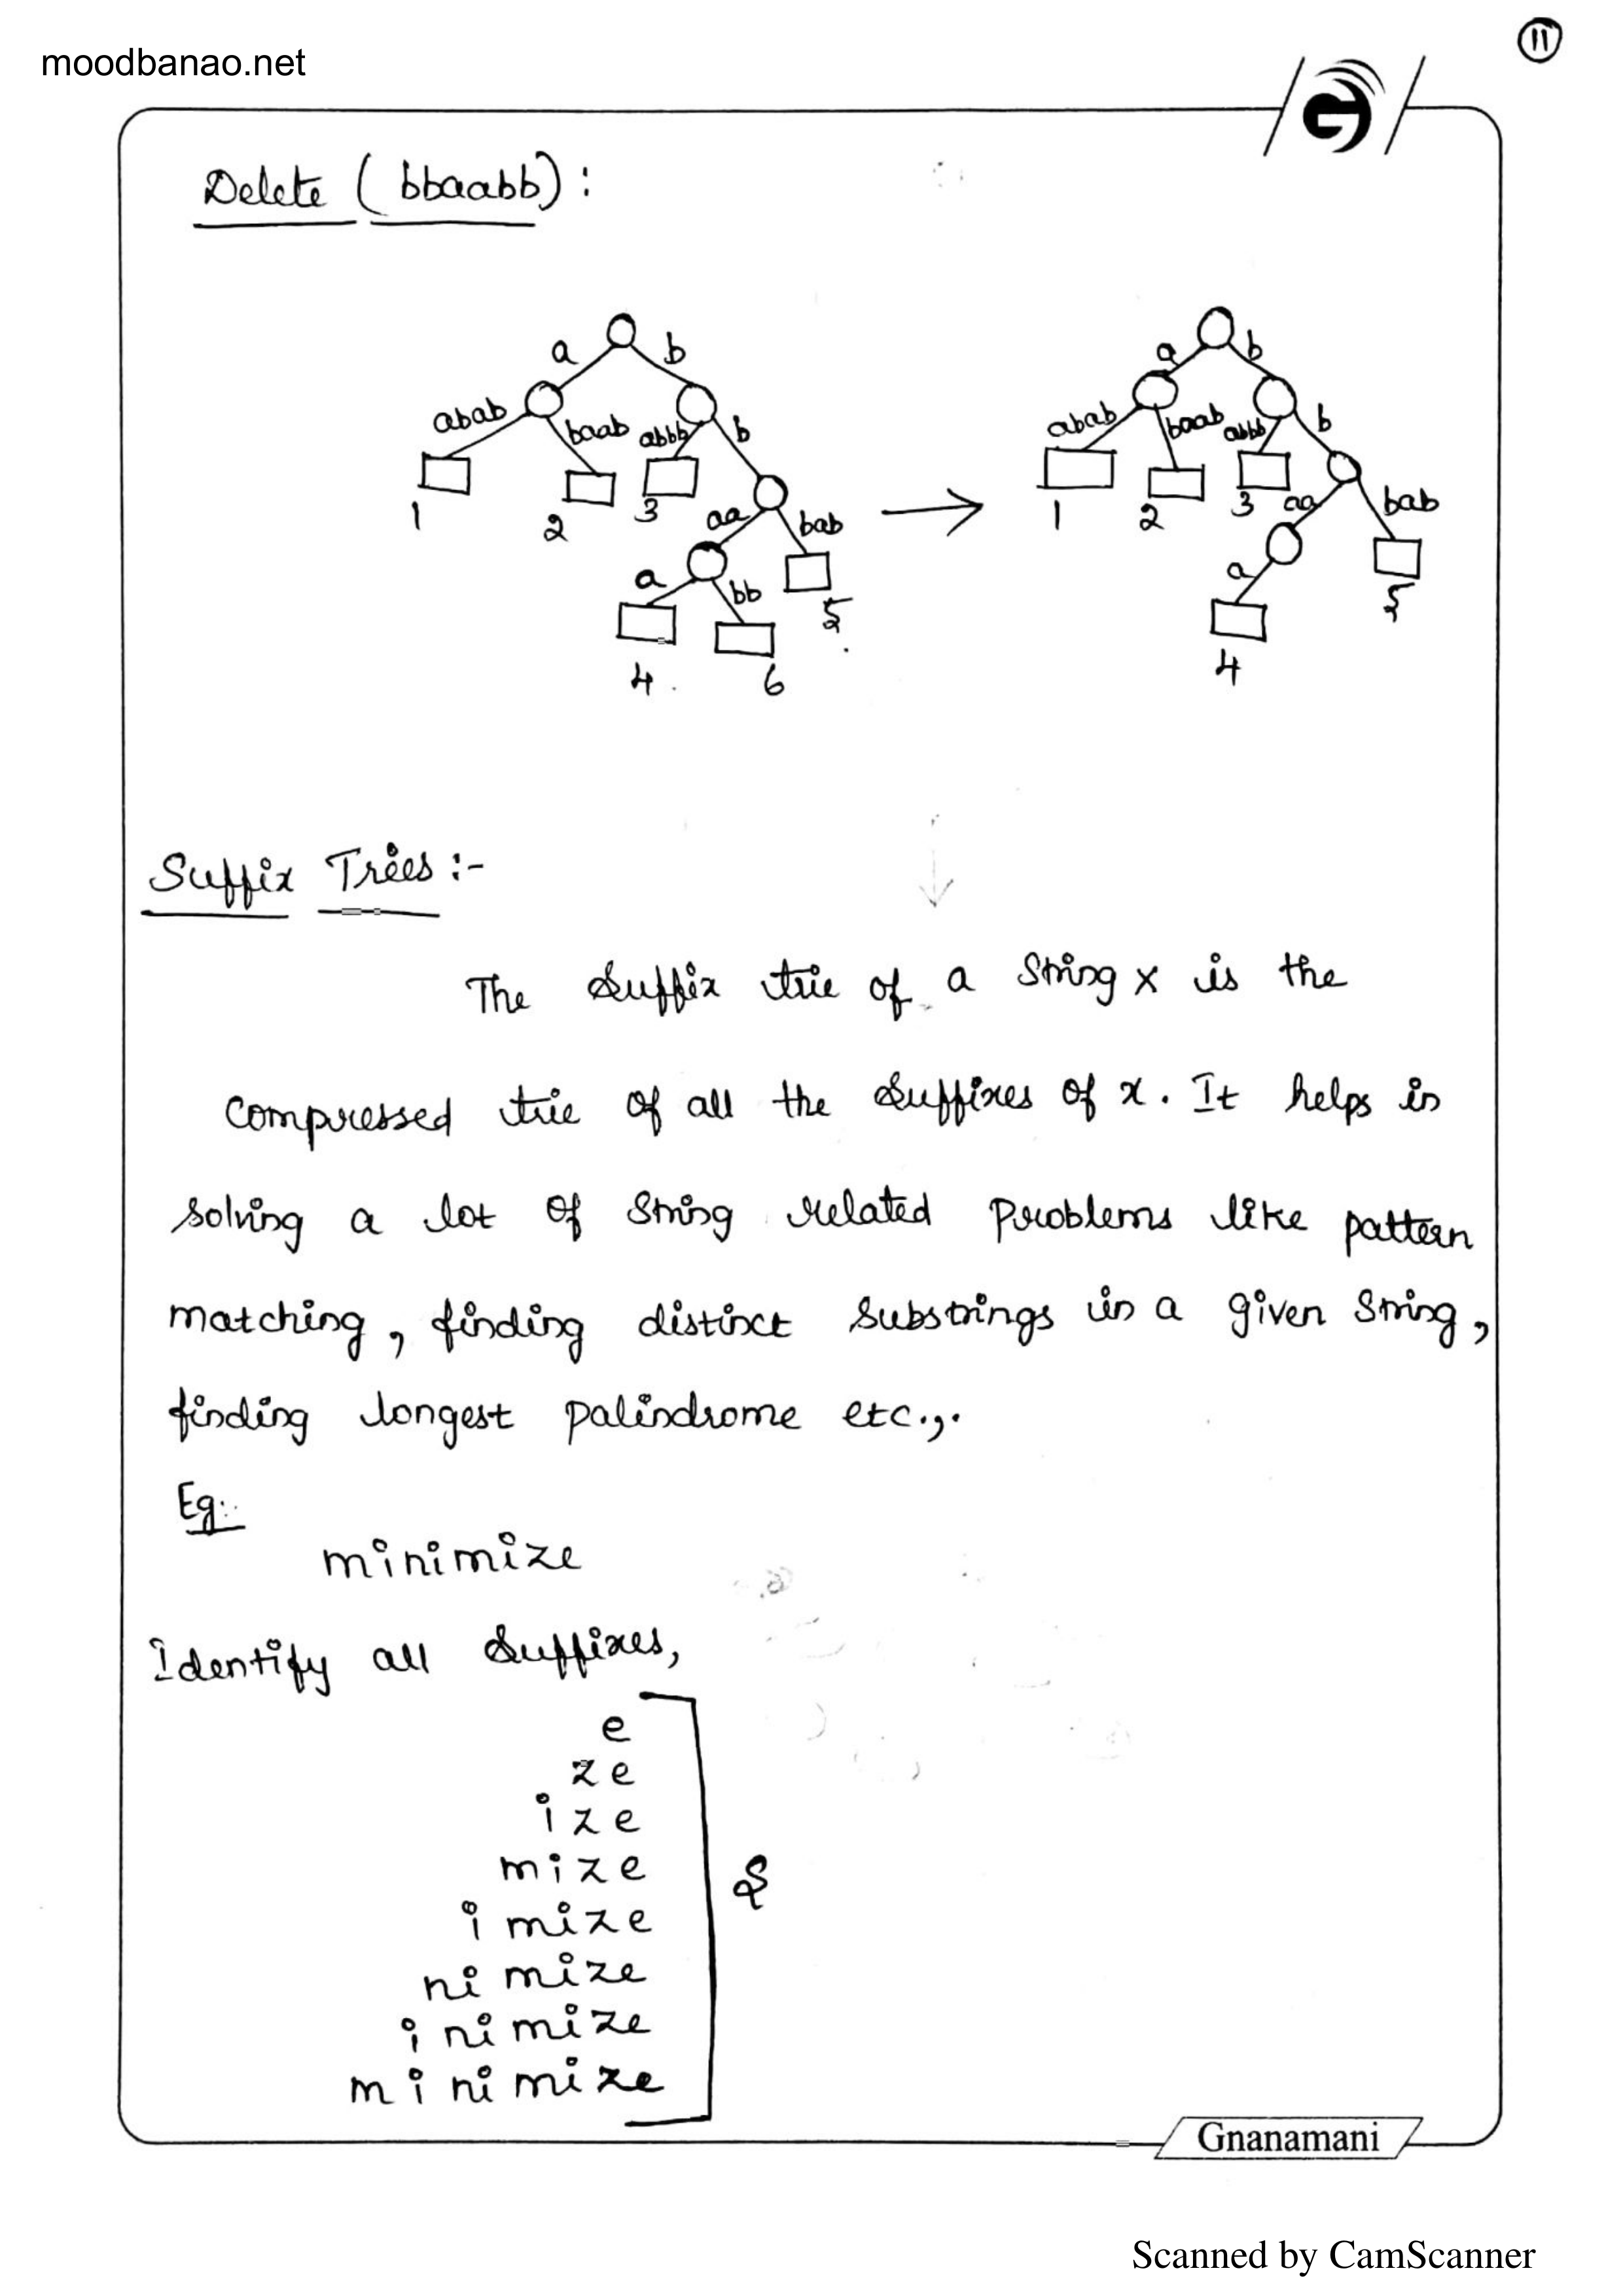 11
moodbanao.net
G
Delete (bbaabb) :
a b a b
abab baab abbb b abab baab abbb b
1 2 3 aa bab 1 2 3 aa bab
a bb 5 a 5
4 6 4
Suffix Trees :-
The Suffix trie of a String x is the
Compressed trie of all the Suffixes of x. It helps in
solving a lot of String related Problems like pattern
matching, finding distinct Substrings in a given String,
finding longest palindrome etc.,.
Eg:
minimize
Identify all Suffixes,
e
ze
ize
mize
imize
nimize
inimize
minimize
S
Gnanamani
Scanned by CamScanner